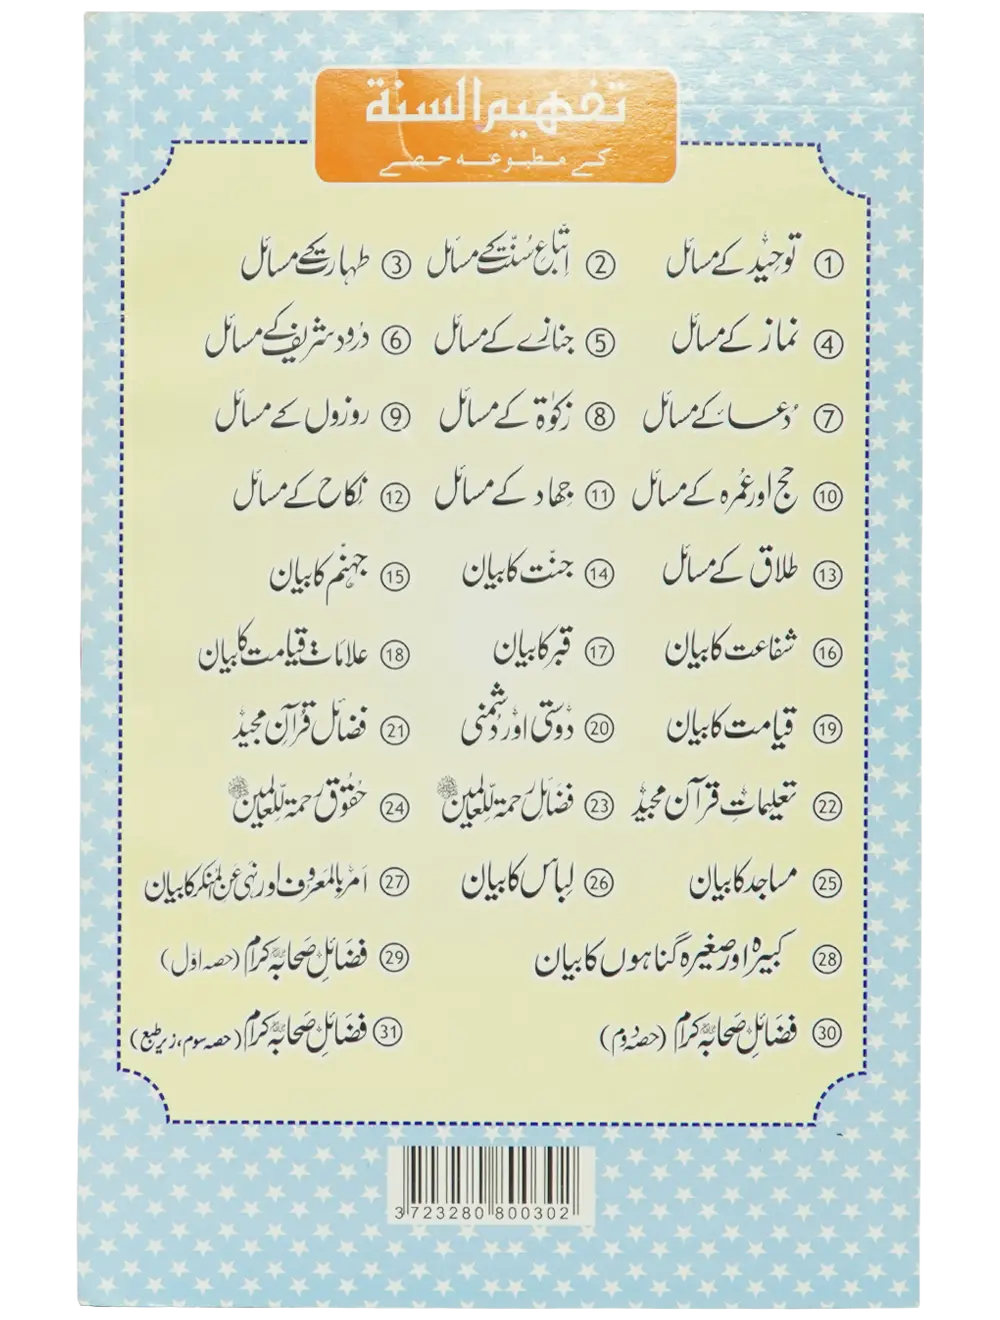 تفہیم السنة
کے مطبوعہ حصے
① توحید کے مسائل ② اتباعِ سُنّت کے مسائل ③ طہارت کے مسائل
④ نماز کے مسائل ⑤ جنازے کے مسائل ⑥ دُرود شریف کے مسائل
⑦ دُعاء کے مسائل ⑧ زکوٰۃ کے مسائل ⑨ روزوں کے مسائل
⑩ حج اور عُمرہ کے مسائل ⑪ جِهاد کے مسائل ⑫ نِکاح کے مسائل
⑬ طلاق کے مسائل ⑭ جنّت کا بیان ⑮ جہنّم کا بیان
⑯ شفاعت کا بیان ⑰ قبر کا بیان ⑱ علاماتِ قیامت کا بیان
⑲ قیامت کا بیان ⑳ دوستی اور دُشمنی ㉑ فضائل قُرآنِ مجید
㉒ تعلیماتِ قرآن مجید ㉓ فضائل رحمة للعالمین ﷺ ㉔ حُقوق رحمة للعالمین ﷺ
㉕ مساجد کا بیان ㉖ لِباس کا بیان ㉗ اَمر بالمعروف اور نہی عن المنکر کا بیان
㉘ کبیرہ اور صغیرہ گناہوں کا بیان ㉙ فضائلِ صحابہ کرام (حصہ اوّل)
㉚ فضائلِ صحابہ کرام (حصہ دوم) ㉛ فضائلِ صحابہ کرام (حصہ سوم، زیر طبع)
3723280800302